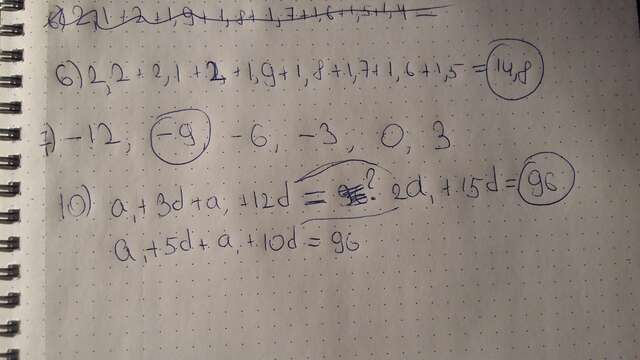 6) 2,1+2+1,9+1,8+1,7+1,6+1,5+1,4=
6) 2,2+2,1+2+1,9+1,8+1,7+1,6+1,5=14,8
7) -12; -9 -6; -3; 0; 3
10) a₁+3d+a₁+12d=? 2a₁+15d=96
a₁+5d+a₁+10d=96